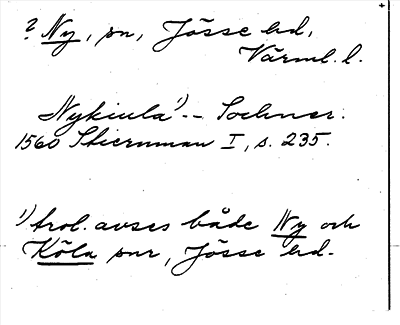 ? Ny, sn, Jösse hd,
Värml. l.
Nykiula¹) -- Sochner.
1560 Stiernman I, s. 235.
¹) trol. avses både Ny och
Köla snr, Jösse hd.